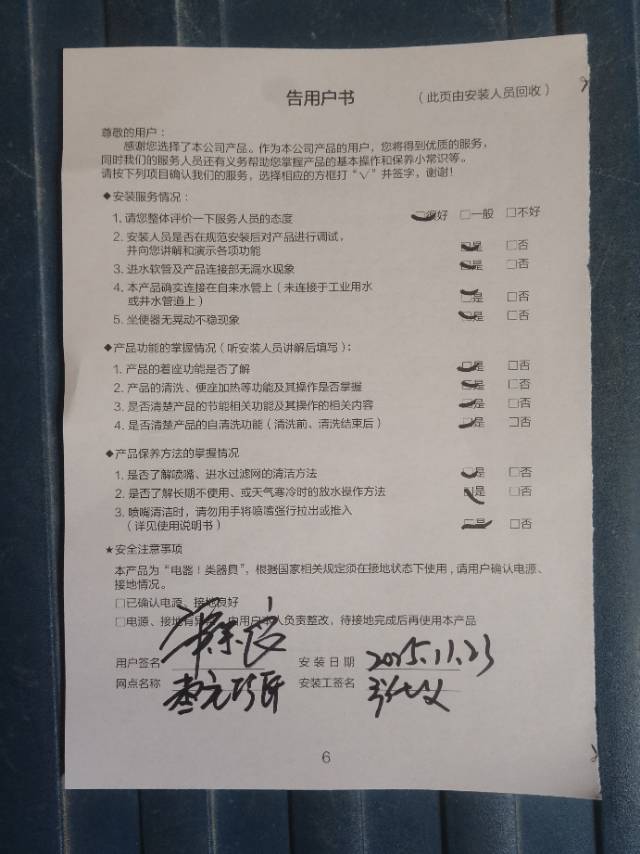 告用户书
（此页由安装人员回收）
尊敬的用户：
感谢您选择了本公司产品。作为本公司产品的用户，您将得到优质的服务，
同时我们的服务人员还有义务帮助您掌握产品的基本操作和保养小常识等。
请按下列项目确认我们的服务，选择相应的方框打“√”并签字，谢谢！
◆安装服务情况：
1. 请您整体评价一下服务人员的态度 □很好 □一般 □不好
2. 安装人员是否在规范安装后对产品进行调试，
并向您讲解和演示各项功能 □是 □否
3. 进水软管及产品连接部无漏水现象 □是 □否
4. 本产品确实连接在自来水管上（未连接于工业用水
或井水管道上） □是 □否
5. 坐便器无晃动不稳现象 □是 □否
◆产品功能的掌握情况（听安装人员讲解后填写）：
1. 产品的着座功能是否了解 □是 □否
2. 产品的清洗、便座加热等功能及其操作是否掌握 □是 □否
3. 是否清楚产品的节能相关功能及其操作的相关内容 □是 □否
4. 是否清楚产品的自清洗功能（清洗前、清洗结束后） □是 □否
◆产品保养方法的掌握情况
1. 是否了解喷嘴、进水过滤网的清洁方法 □是 □否
2. 是否了解长期不使用、或天气寒冷时的放水操作方法 □是 □否
3. 喷嘴清洁时，请勿用手将喷嘴强行拉出或推入
（详见使用说明书） □是 □否
★安全注意事项
本产品为“电器Ⅰ类器具”，根据国家相关规定须在接地状态下使用，请用户确认电源、
接地情况。
□已确认电源、接地良好
□电源、接地有 由用户本人负责整改，待接地完成后再使用本产品
用户签名 安装日期 2025.11.23
网点名称 安装工签名
6